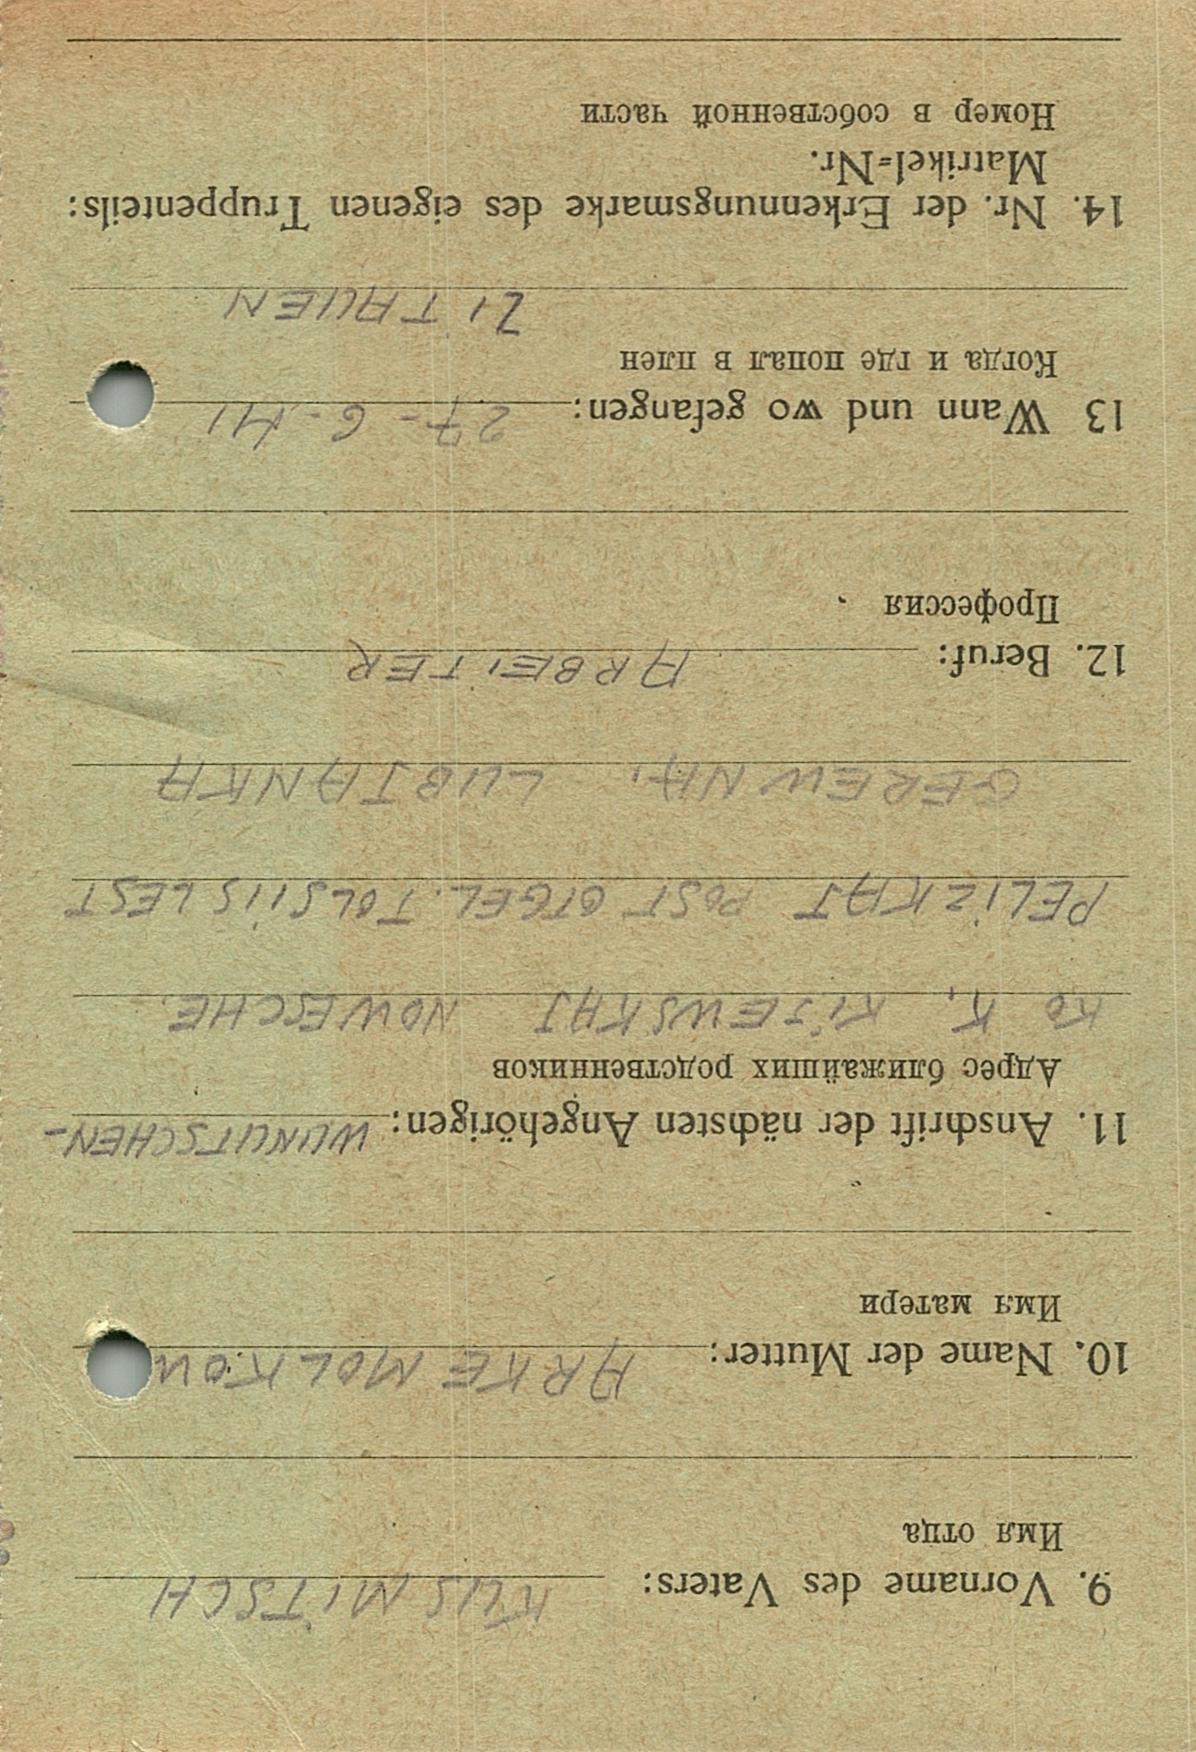 9. Vorname des Vaters: KUSMITSCH
Имя отца
10. Name der Mutter: ARKE MOLKOW
Имя матери
11. Anschrift der nächsten Angehörigen: WUNUTSCHEN-
Адрес ближайших родственников
KO K, KIJEWSKAJ NOWESCHE
PELIZKAJ POST OTGEL. TOLSIISLEST
GEREWNA, LUBJANKA
12. Beruf: ARBEITER
Профессия
13 Wann und wo gefangen: 27-6-41
Когда и где попал в плен
LITAUEN
14. Nr. der Erkennungsmarke des eigenen Truppenteils:
Matrikel=Nr.
Номер в собственной части